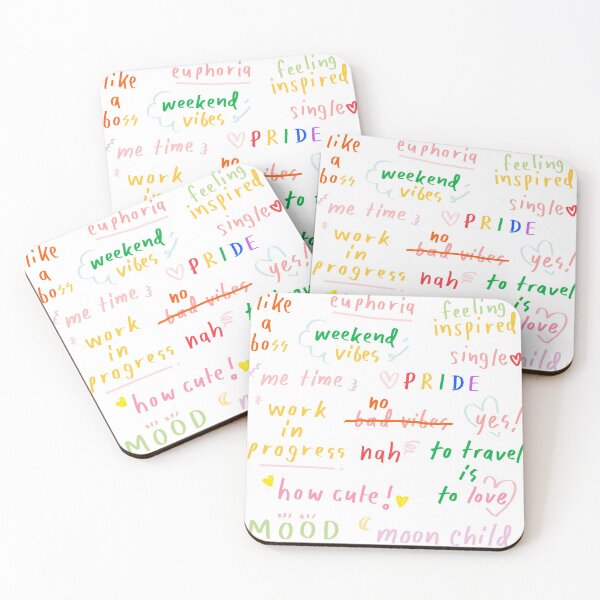 like
a
boss
euphoria
feeling
inspired
weekend
vibes
single
me time
PRIDE
work
in
no
like
a
boss
euphoria
feeling
inspired
weekend
vibes
single
me time
PRIDE
work
in
progress
no
bad vibes
yes!
nah
to travel
love
like
a
boss
euphoria
feeling
inspired
weekend
vibes
single
me time
PRIDE
work
in
progress
no
bad vibes
yes!
nah
how cute!
MOOD
like
a
boss
euphoria
feeling
inspired
weekend
vibes
single
me time
PRIDE
work
in
progress
no
bad vibes
yes!
nah
to travel
is
to love
how cute!
MOOD
moon child